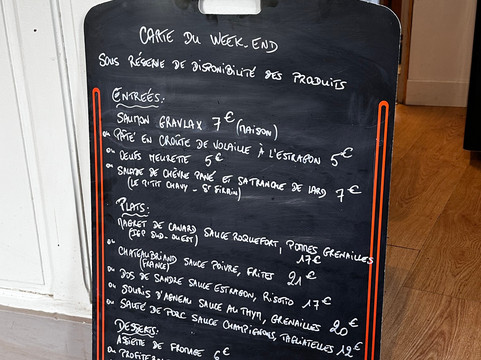 CARTE DU WEEK-END
SOUS RÉSERVE DE DISPONIBILITÉ DES PRODUITS
ENTRÉES:
SAUMON GRAVLAX 7€ (MAISON)
ou PÂTÉ EN CROÛTE DE VOLAILLE À L'ESTRAGON 5€
ou OEUFS MEURETTE 5€
ou SALADE DE CHÈVRE PANÉ ET SA TRANCHE DE LARD 7€
(LE P'TIT CHAVY - ST
PLATS:
MAGRET DE CANARD SAUCE ROQUEFORT, POMMES GRENAILLES
(IGP SUD-OUEST) 17€
ou CHATEAUBRIAND SAUCE POIVRE, FRITES 21€
(FRANCE)
ou DOS DE SANDRE SAUCE ESTRAGON, RISOTTO 17€
ou SOURIS D'AGNEAU SAUCE AU THYM, GRENAILLES 20€
ou SAUTÉ DE PORC SAUCE CHAMPIGNONS, TAGLIATELLES 12€
DESSERTS:
ASSIETTE DE FROMAGE 6€
ou